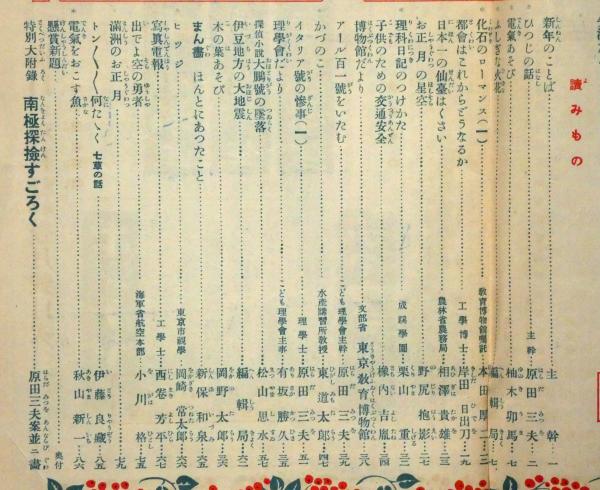 讀みもの
新年のことば…主幹…一
ひつじの話…主幹 原田三夫…二
電氣あそび…柚木卯馬…七
ふしぎな火花…編輯局…七
化石のローマンス(一)…教育博物館囑託 本田厚二…一二
都會はこれからどうなるか…工學博士 岸田日出刀…一九
日本一の仙臺はくさい…農林省農務局 相澤貴雄…二三
お正月の星空…野尻抱影…二七
理科日記のつけかた…成蹊學園 栗山重…三二
子供のための交通安全…椽内吉胤…三四
博物館だより…文部省 東京教育博物館…三八
アール百一號をいたむ…こども理學會主幹 原田三夫…三九
かづのこ…水產講習所教授 東道太郎…四七
イタリア號の慘事(一)…理學士 原田三夫…五一
理學會だより…こども理學會主事 有坂勝久…五五
探偵小說大鵬號の墜落…松思水…五七
伊豆地方の大地震…編輯局…六二
木の葉あそび…岡野太郎…六三
まん畵 ほんとにあつたこと…新保和泉…六五
ヒツジ…東京市視學 岡崎常太郎…六六
寫眞電報…工學士 西卷芳平…六七
出でよ空の勇者…海軍省航空本部 小川格…七五
滿洲のお正月…七九
トン〱〱何たゝく 七草の話…伊藤良藏…八五
電氣をおこす魚…秋山新一…八六
懸賞新題…奥付
特別大附錄 南極探檢すごろく…原田三夫案並ニ畵